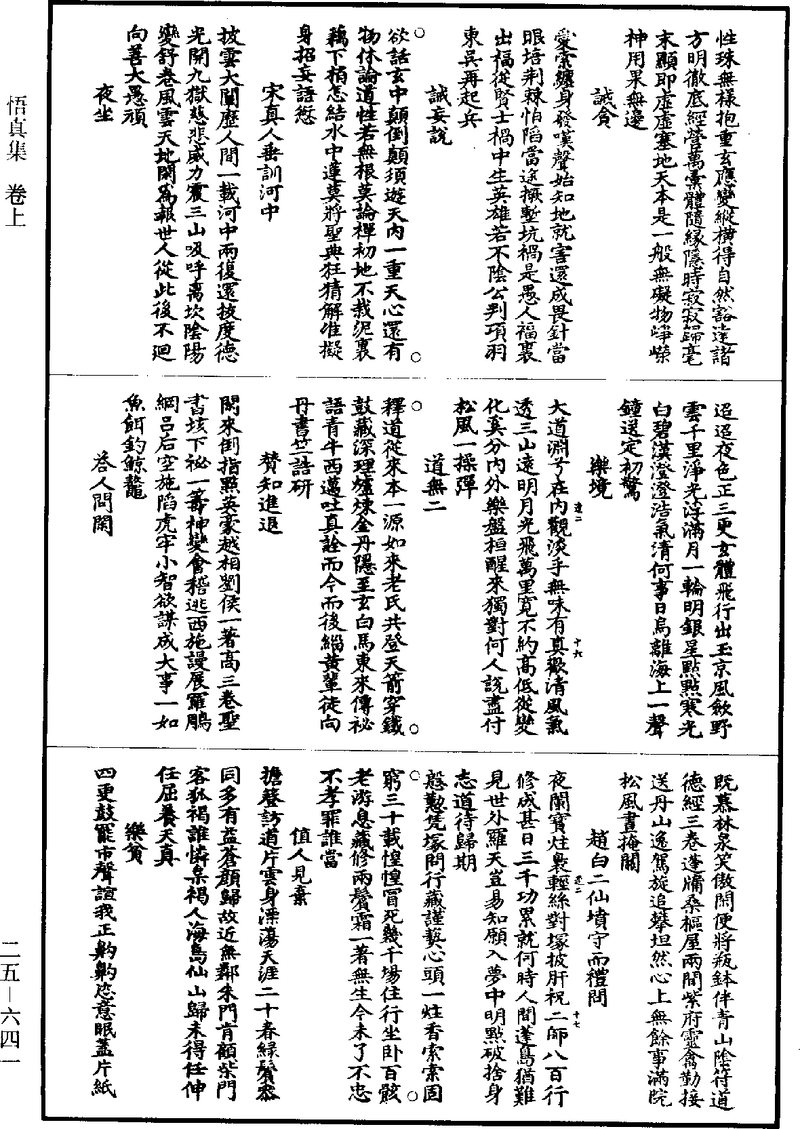 悟真集 卷上
性珠無樣抱重玄應變縱橫得自然豁達諸
方明徹底經營萬彙體隨緣隱時寂寂歸毫
末顯即虛虛塞地天本是一般無礙物崢嶸
神用果無邊
誡貪
愛索纏身發嘆聲始知地就害還成畏針當
眼培荆棘怕陷當途撅塹坑禍是愚人福裏
出福從賢士禍中生英雄若不陰公判項羽
東吳再起兵
誡妄說
欲話玄中顛倒顛須遊天內一重天心還有
物休論道性若無根莫論禪初地不栽泥裏
藕下梢怎結水中蓮莫將聖典狂猜解准擬
身招妄語愆
宋真人垂訓河中
披雲大闡歷人間一載河中兩復還披度德
光開九獄慈悲威力震三山吸呼离坎陰陽
變舒卷風雲天地閑為報世人從此後不迴
向善大愚頑
夜坐
迢迢夜色正三更玄體飛行出玉京風歛野
雲千里淨光浮滿月一輪明銀星點點寒光
白碧漢澄澄浩氣清何事日烏離海上一聲
鐘送定初驚
樂境
大道淵兮在內觀淡乎無味有真歡清風氣
透三山遠明月光飛萬里寬不約高低從變
化奚分內外樂盤桓醒來獨對何人說盡付
松風一操彈
道無二
釋道從來本一源如來老氏共登天箭穿鐵
鼓藏深理爐煉金丹隱至玄白馬東來傳祕
語青牛西邁吐真詮而今而後緇黃輩徒向
丹書竺語研
贊知進退
閑來倒指點英豪越相劉侯一著高三卷聖
書垓下祕一籌神變會稽逃西施謾展羅鵰
網呂后空施陷虎牢小智欲謀成大事一如
魚餌釣鯨鼇
荅人問閑
既慕林泉笑傲閑便將瓶鉢伴青山陰符道
德經三卷蓬牖桑樞屋兩間紫府靈禽勤接
送丹山逸駕旋追攀坦然心上無餘事滿院
松風晝掩關
趙白二仙墳守而禮問
夜闌寶炷裊輕絲對塚披肝祝二師八百行
修成甚日三千功累就何時人間蓬島猶難
見世外羅天豈易知願入夢中明點破捨身
志道待歸期
慇懃凭塚問行藏謹爇心頭一炷香索索固
窮三十載惶惶冒死幾千場住行坐卧百骸
老游息藏修兩鬢霜一著無生今未了不忠
不孝罪誰當
值人見棄
擔簦訪道片雲身漂蕩天涯二十春綠鬢黍
同多有益蒼顏歸故近無鄰朱門肯顧柴門
客狐褐誰憐枲褐人海島仙山歸未得任伸
任屈養天真
樂貧
四更鼓罷市聲諠我正齁齁恣意眠蓋片紙
二五—六四一